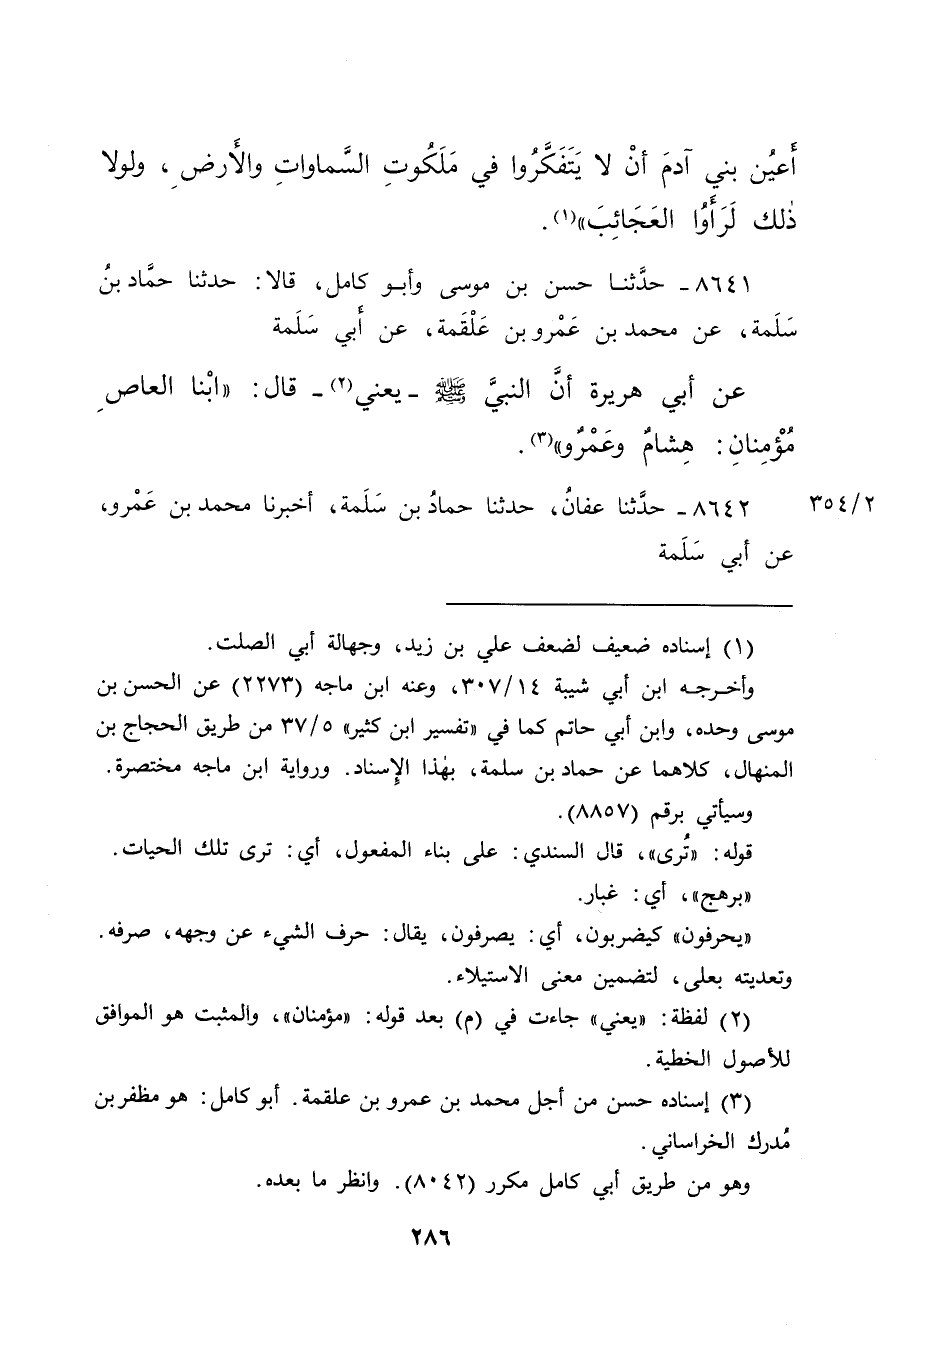 أَعيُن بني آدمَ أنْ لا يَتَفَكَّرُوا في مَلَكُوتِ السَّماواتِ والأَرضِ، ولولا
ذٰلك لَرَأَوُا العَجَائِبَ»(١).
٨٦٤١ـ حدَّثنا حسن بن موسى وأبو كامل، قالا: حدثنا حمَّاد بنُ
سَلَمة، عن محمد بن عَمْرو بن عَلْقَمة، عن أَبي سَلَمة
عن أبي هريرة أنَّ النبيَّ ﷺ ـ يعني(٢) ـ قال: «ابْنا العاصِ
مُؤْمِنانِ: هِشامٌ وعَمْرٌو»(٣).
٣٥٤/٢ ٨٦٤٢ـ حدَّثنا عفانُ، حدثنا حمادُ بن سَلَمة، أخبرنا محمد بن عَمْرو،
عن أبي سَلَمة
(١) إسناده ضعيف لضعف علي بن زيد، وجهالة أبي الصلت.
وأخرجه ابن أبي شيبة ٣٠٧/١٤، وعنه ابن ماجه (٢٢٧٣) عن الحسن بن
موسى وحده، وابن أبي حاتم كما في «تفسير ابن كثير» ٣٧/٥ من طريق الحجاج بن
المنهال، كلاهما عن حماد بن سلمة، بهٰذا الإسناد. ورواية ابن ماجه مختصرة.
وسيأتي برقم (٨٨٥٧).
قوله: «تُرى»، قال السندي: على بناء المفعول، أي: ترى تلك الحيات.
«برهج»، أي: غبار.
«يحرفون» كيضربون، أي: يصرفون، يقال: حرف الشيء عن وجهه، صرفه.
وتعديته بعلى، لتضمين معنى الاستيلاء.
(٢) لفظة: «يعني» جاءت في (م) بعد قوله: «مؤمنان»، والمثبت هو الموافق
للأصول الخطية.
(٣) إسناده حسن من أجل محمد بن عمرو بن علقمة. أبو كامل: هو مظفر بن
مُدرك الخراساني.
وهو من طريق أبي كامل مكرر (٨٠٤٢). وانظر ما بعده.
٢٨٦